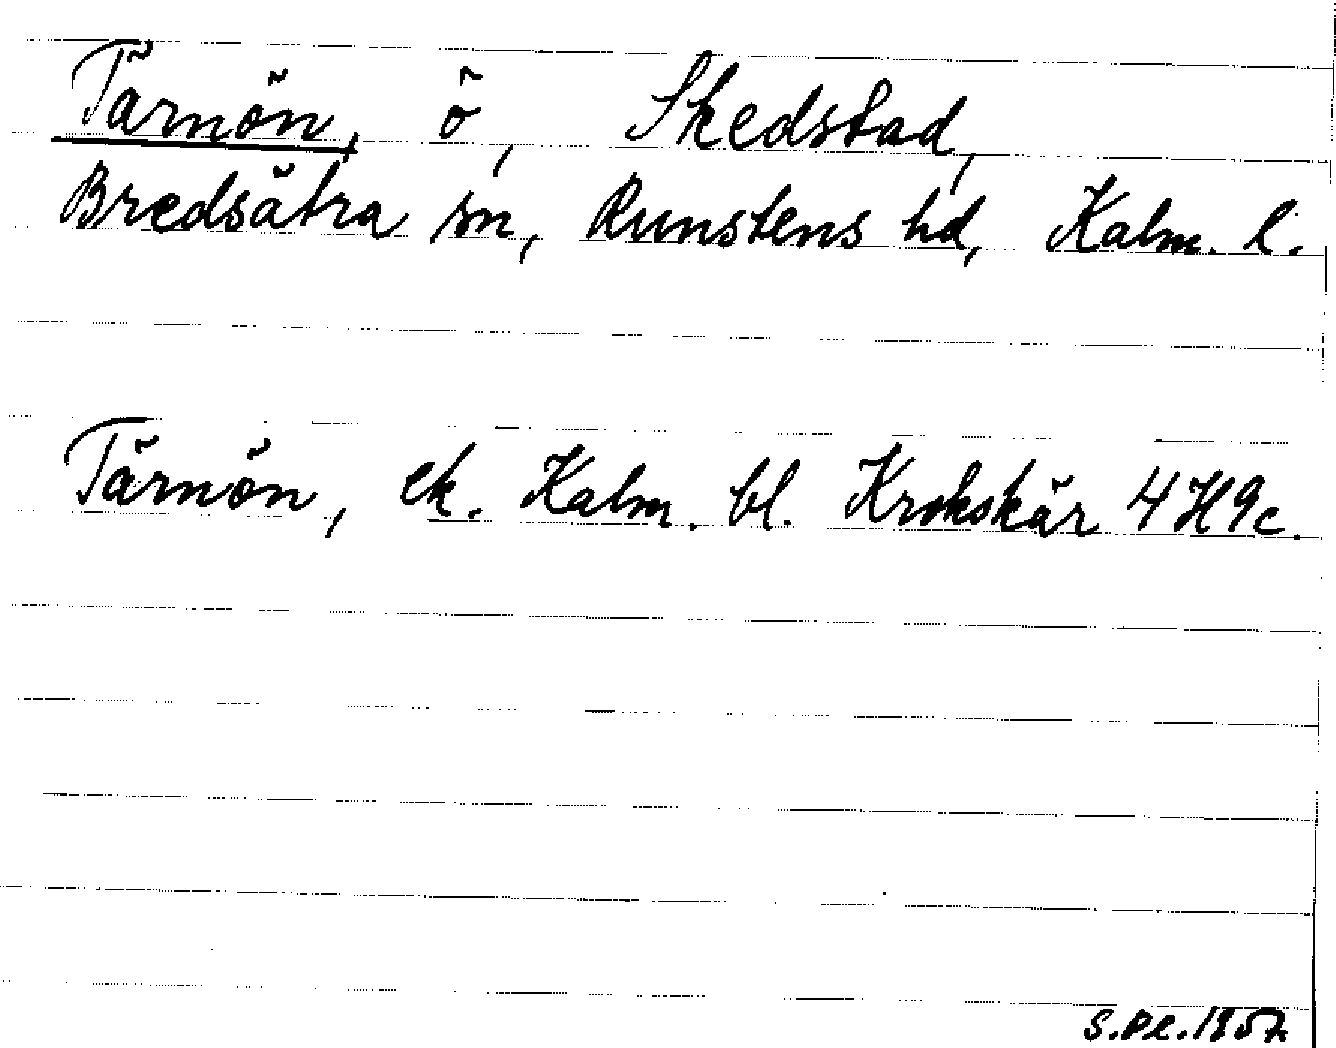 Tärnön, ö, Skedstad,
Bredsätra sn, Runstens hd, Kalm. l.
Tärnön, ek. Kalm. bl. Krokskär 4H9c.
S.Pl.1957